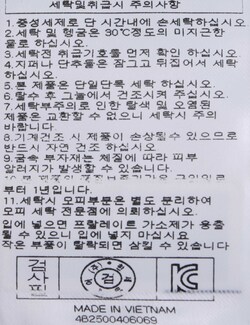 세탁및취급시 주의사항
1.중성세제로 단 시간내에 손세탁하십시오
2.세탁 및 헹굼은 30℃정도의 미지근한
물로 하십시오.
3.세탁전 취급기호를 먼저 확인 하십시오
4.지퍼나 단추를은 잠그고 뒤집어서 세탁
하십시오.
5.본 제품은 단일단독 세탁 하십시오
6.탈수 후 그늘에서 건조시켜 주십시오.
7.세탁부주의로 인한 탈색 및 오염된
제품은 교환할 수 없으니 세탁시 주의
바랍니다.
8.기계건조 시 제품이 손상될수 있으므로
반드시 자연 건조 하십시오
9.금속 부자재는 체질에 따라 피부
알러지가 발생할 수 있습니다.
부터 1년입니다.
11.세탁시 모피부분은 별도 분리하여
모피 세탁 전문점에 의뢰하십시오.
입에 넣으면 프탈레이트 가소제가 용출
될 수 있으니 입에 넣지 마십시요
작은 부품이 탈락되면 삼킬수 있습니다
검사필 검 KC
MADE IN VIETNAM
482500406069